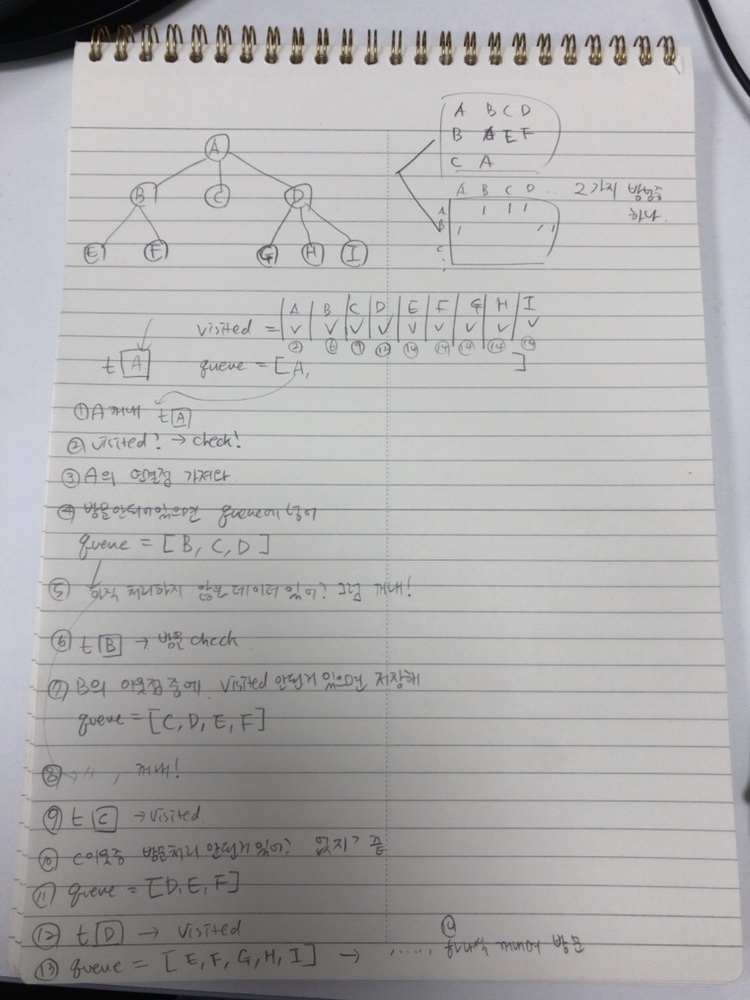 A
B C D
E F G H I
A B C D
B A E F
C A
A B C D .. 2가지 방법중
하나.
A 1 1 1
B 1 1 1
C
A B C D E F G H I
visited = ✓ ✓ ✓ ✓ ✓ ✓ ✓ ✓ ✓
② ⑥ ⑨ ⑫ ⑭ ⑭ ⑭ ⑭ ⑭
t A queue = [A, ]
① A 꺼내 t A
② visited? → check!
③ A의 연결점 가져와
④ 방문안되어있으면 queue에 넣어
queue = [B, C, D]
⑤ 아직 처리하지 않은 데이터 있어? 그럼 꺼내!
⑥ t B → 방문 check
⑦ B의 이웃점 중에 visited 안된거 있으면 저장해
queue = [C, D, E, F]
⑧ → 〃, 꺼내!
⑨ t C → visited
⑩ C이웃중 방문처리 안된거 있어? 없지? 끝
⑪ queue = [D, E, F]
⑫ t D → visited
⑬ queue = [E, F, G, H, I] → ..... ⑭ 하나씩 꺼내어 방문